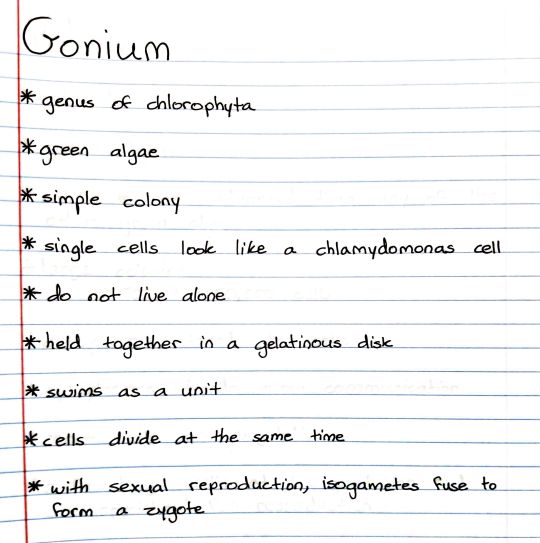 Gonium
* genus of chlorophyta
* green algae
* simple colony
* single cells look like a chlamydomonas cell
* do not live alone
* held together in a gelatinous disk
* swims as a unit
* cells divide at the same time
* with sexual reproduction, isogametes fuse to
form a zygote